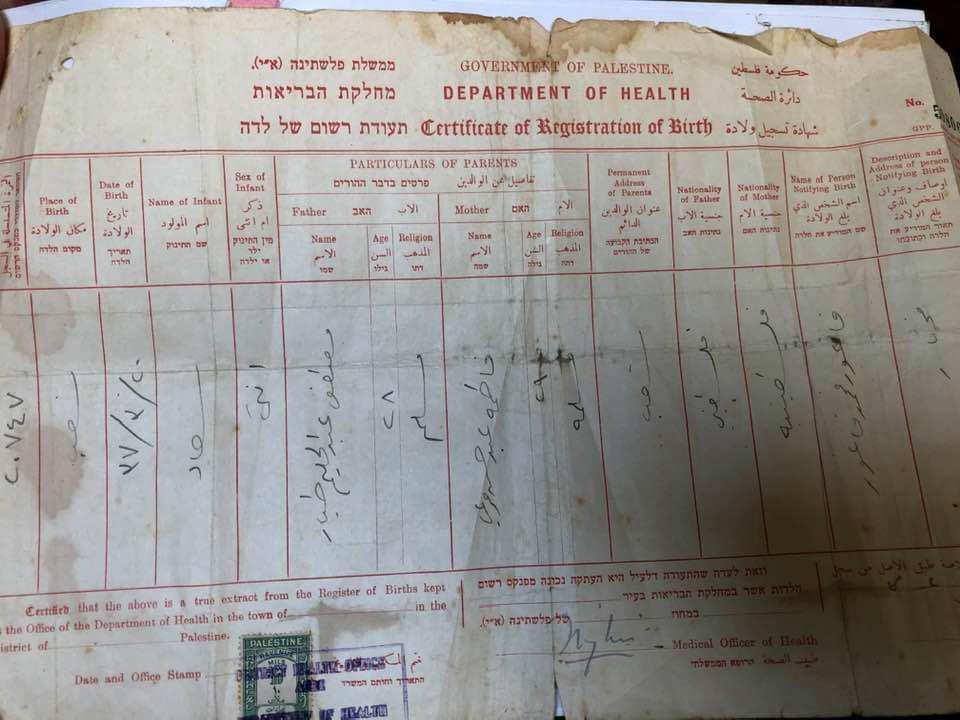 ממשלת פלשתינה (א״י). GOVERNMENT OF PALESTINE. حكومة فلسطين
מחלקת הבריאות DEPARTMENT OF HEALTH دائرة الصحة
תעודת רשום של לדה Certificate of Registration of Birth شهادة تسجيل ولادة
No.
GPP.
Place of Birth
مكان الولادة
מקום הלדה
Date of Birth
تاريخ الولادة
תאריך הלדה
Name of Infant
اسم المولود
שם התינוק
Sex of Infant
ذكر ام انثى
מין התינוק
ילד או ילדה
PARTICULARS OF PARENTS
פרטים בדבר ההורים تفاصيل عن الوالدين
Father האב الاب
Name
الاسم
שמו
Age
السن
גילו
Religion
المذهب
דתו
Mother האם الام
Name
الاسم
שמה
Age
السن
גילה
Religion
المذهب
דתה
Permanent Address of Parents
عنوان الوالدين الدائم
הכתובת הקבועה של ההורים
Nationality of Father
جنسية الاب
נתינות האב
Nationality of Mother
جنسية الام
נתינות האם
Name of Person Notifying Birth
اسم الشخص الذي بلغ الولادة
שם המודיע את הלדה
Description and Address of person Notifying Birth
اوصاف وعنوان الشخص الذي بلغ الولادة
תאור המודיע את הלדה וכתובתו
٢٠٧٤٧
صفد
٢٠/٣/٤٧
سعاد
انثى
مصطفى عبد الحليم
٢٨
مسلم
فاطمة
مسلمه
صفد
فلسطيني
فلسطينيه
محمد
Certified that the above is a true extract from the Register of Births kept
the Office of the Department of Health in the town of in the
district of Palestine.
Date and Office Stamp
PALESTINE
DISTRICT HEALTH OFFICE
OF HEALTH
ختم
התאריך וחותם המשרד
וזאת לעדה שהתעודה דלעיל היא העתקה נכונה מפנקס רשום
הלדות אשר במחלקת הבריאות בעיר
במחוז של פלשתינה (א״י).
Medical Officer of Health
طبيب الصحة הרופא הממשלתי
طبق الاصل من سجل